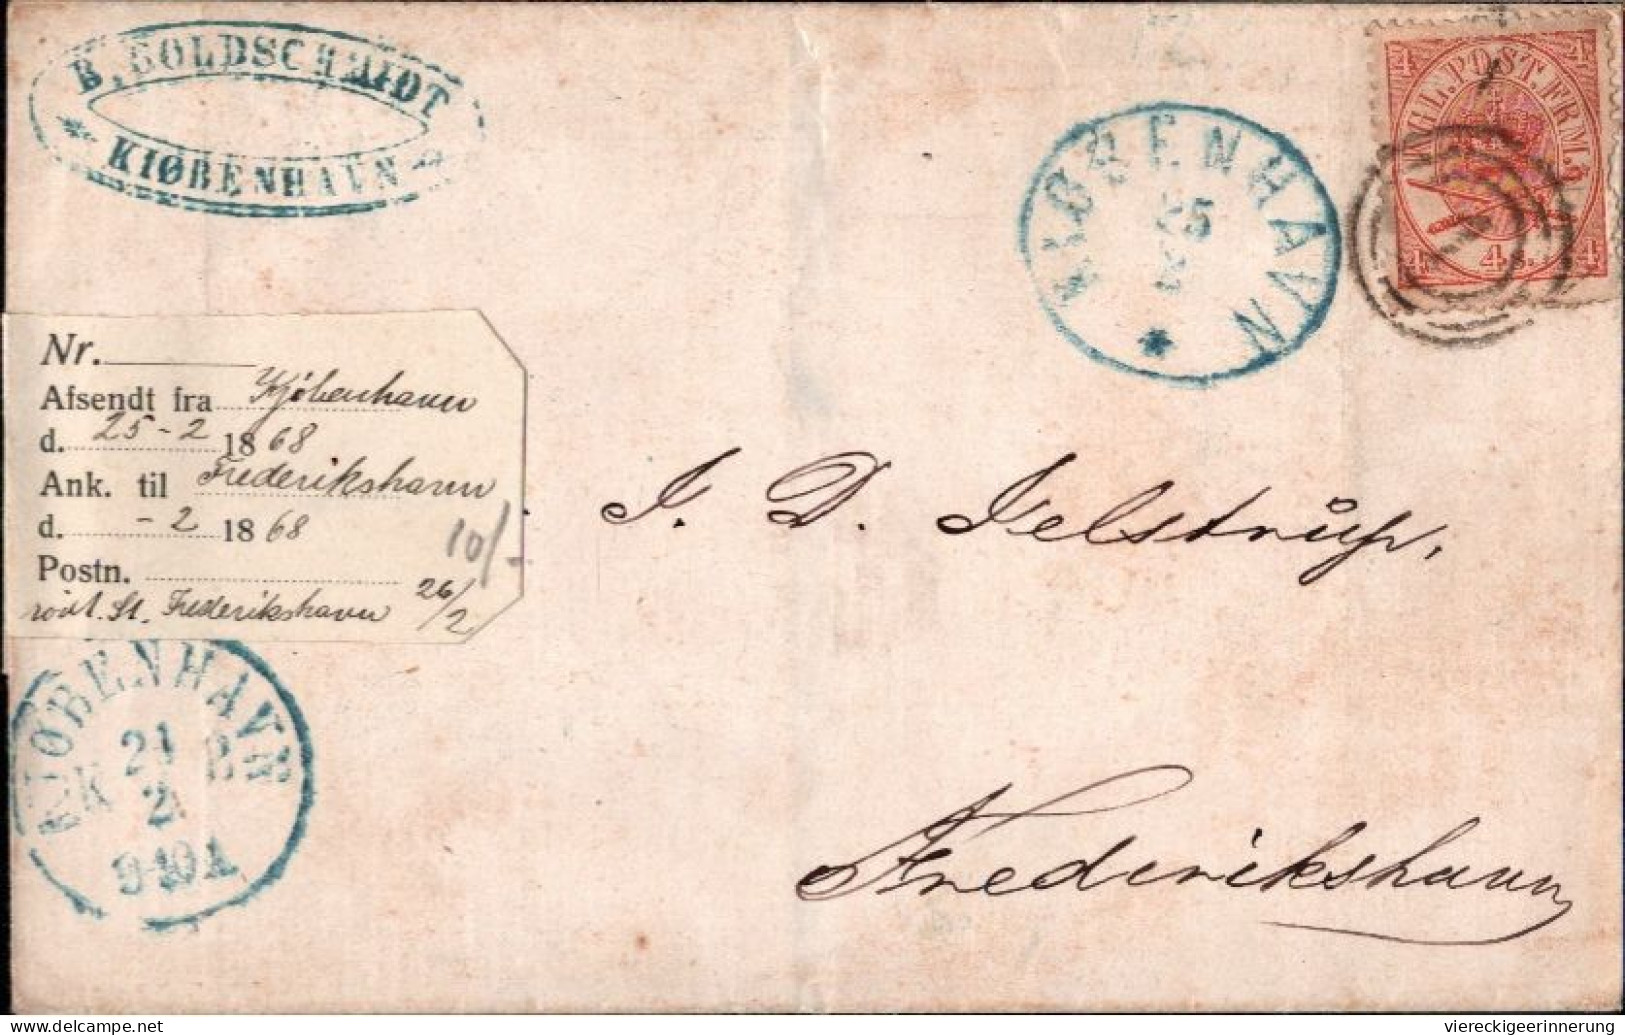 B. GOLDSCHMIDT
* KIØBENHAVN
KIØBENHAVN
25
2
*
4 KGL. POST. FRM. 4
4 4 S. 4
Nr.
Afsendt fra Kjöbenhavn
d. 25-2 1868
Ank. til Frederikshavn
d. -2 1868
10/-
Postn.
rödt. St. Frederikshavn 26/2
J. D. Jelstrüp,
KJØBENHAVN
K 24 B
2
9-10 A
Frederikshavn
delcampe.net
viereckigeerinnerung